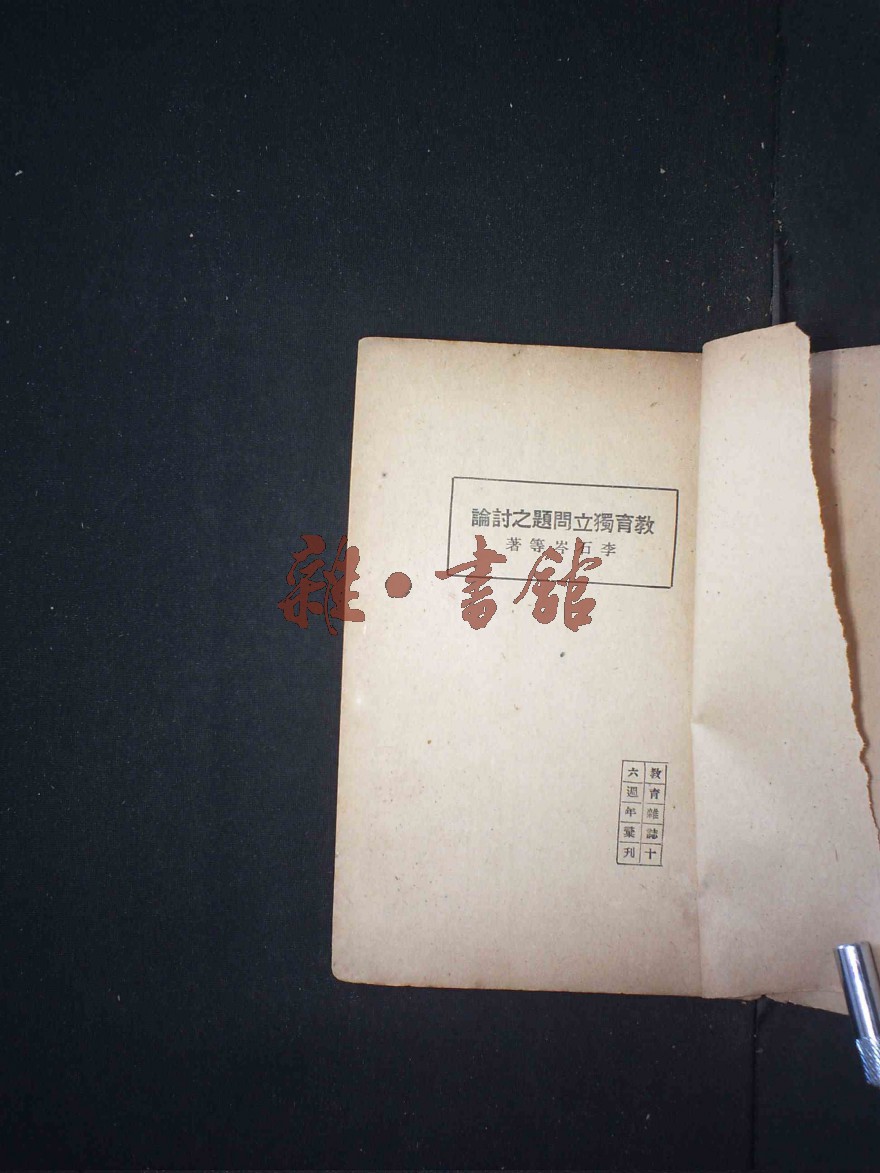 教育獨立問題之討論
李石岑等著
雜·書館
教育雜誌十
六週年彙刊